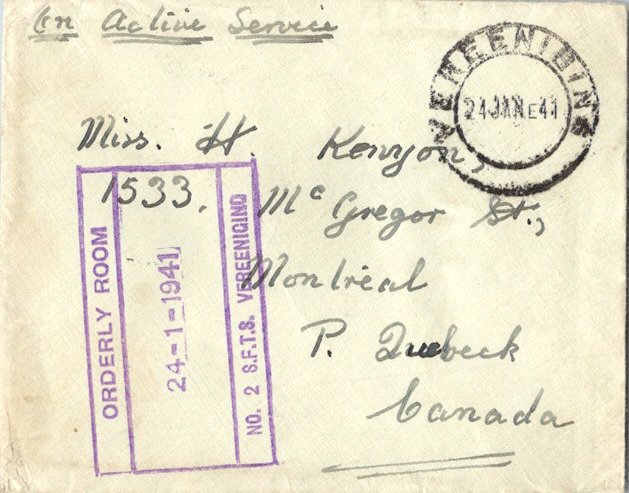 On Active Service
VEREENIGING
24 JAN E 41
Miss. H. Kenyon,
1533, Mc Gregor St.,
Montreal
P. Quebeck
Canada
ORDERLY ROOM
24-1-1941
NO. 2 S.F.T.S. VEREENIGING